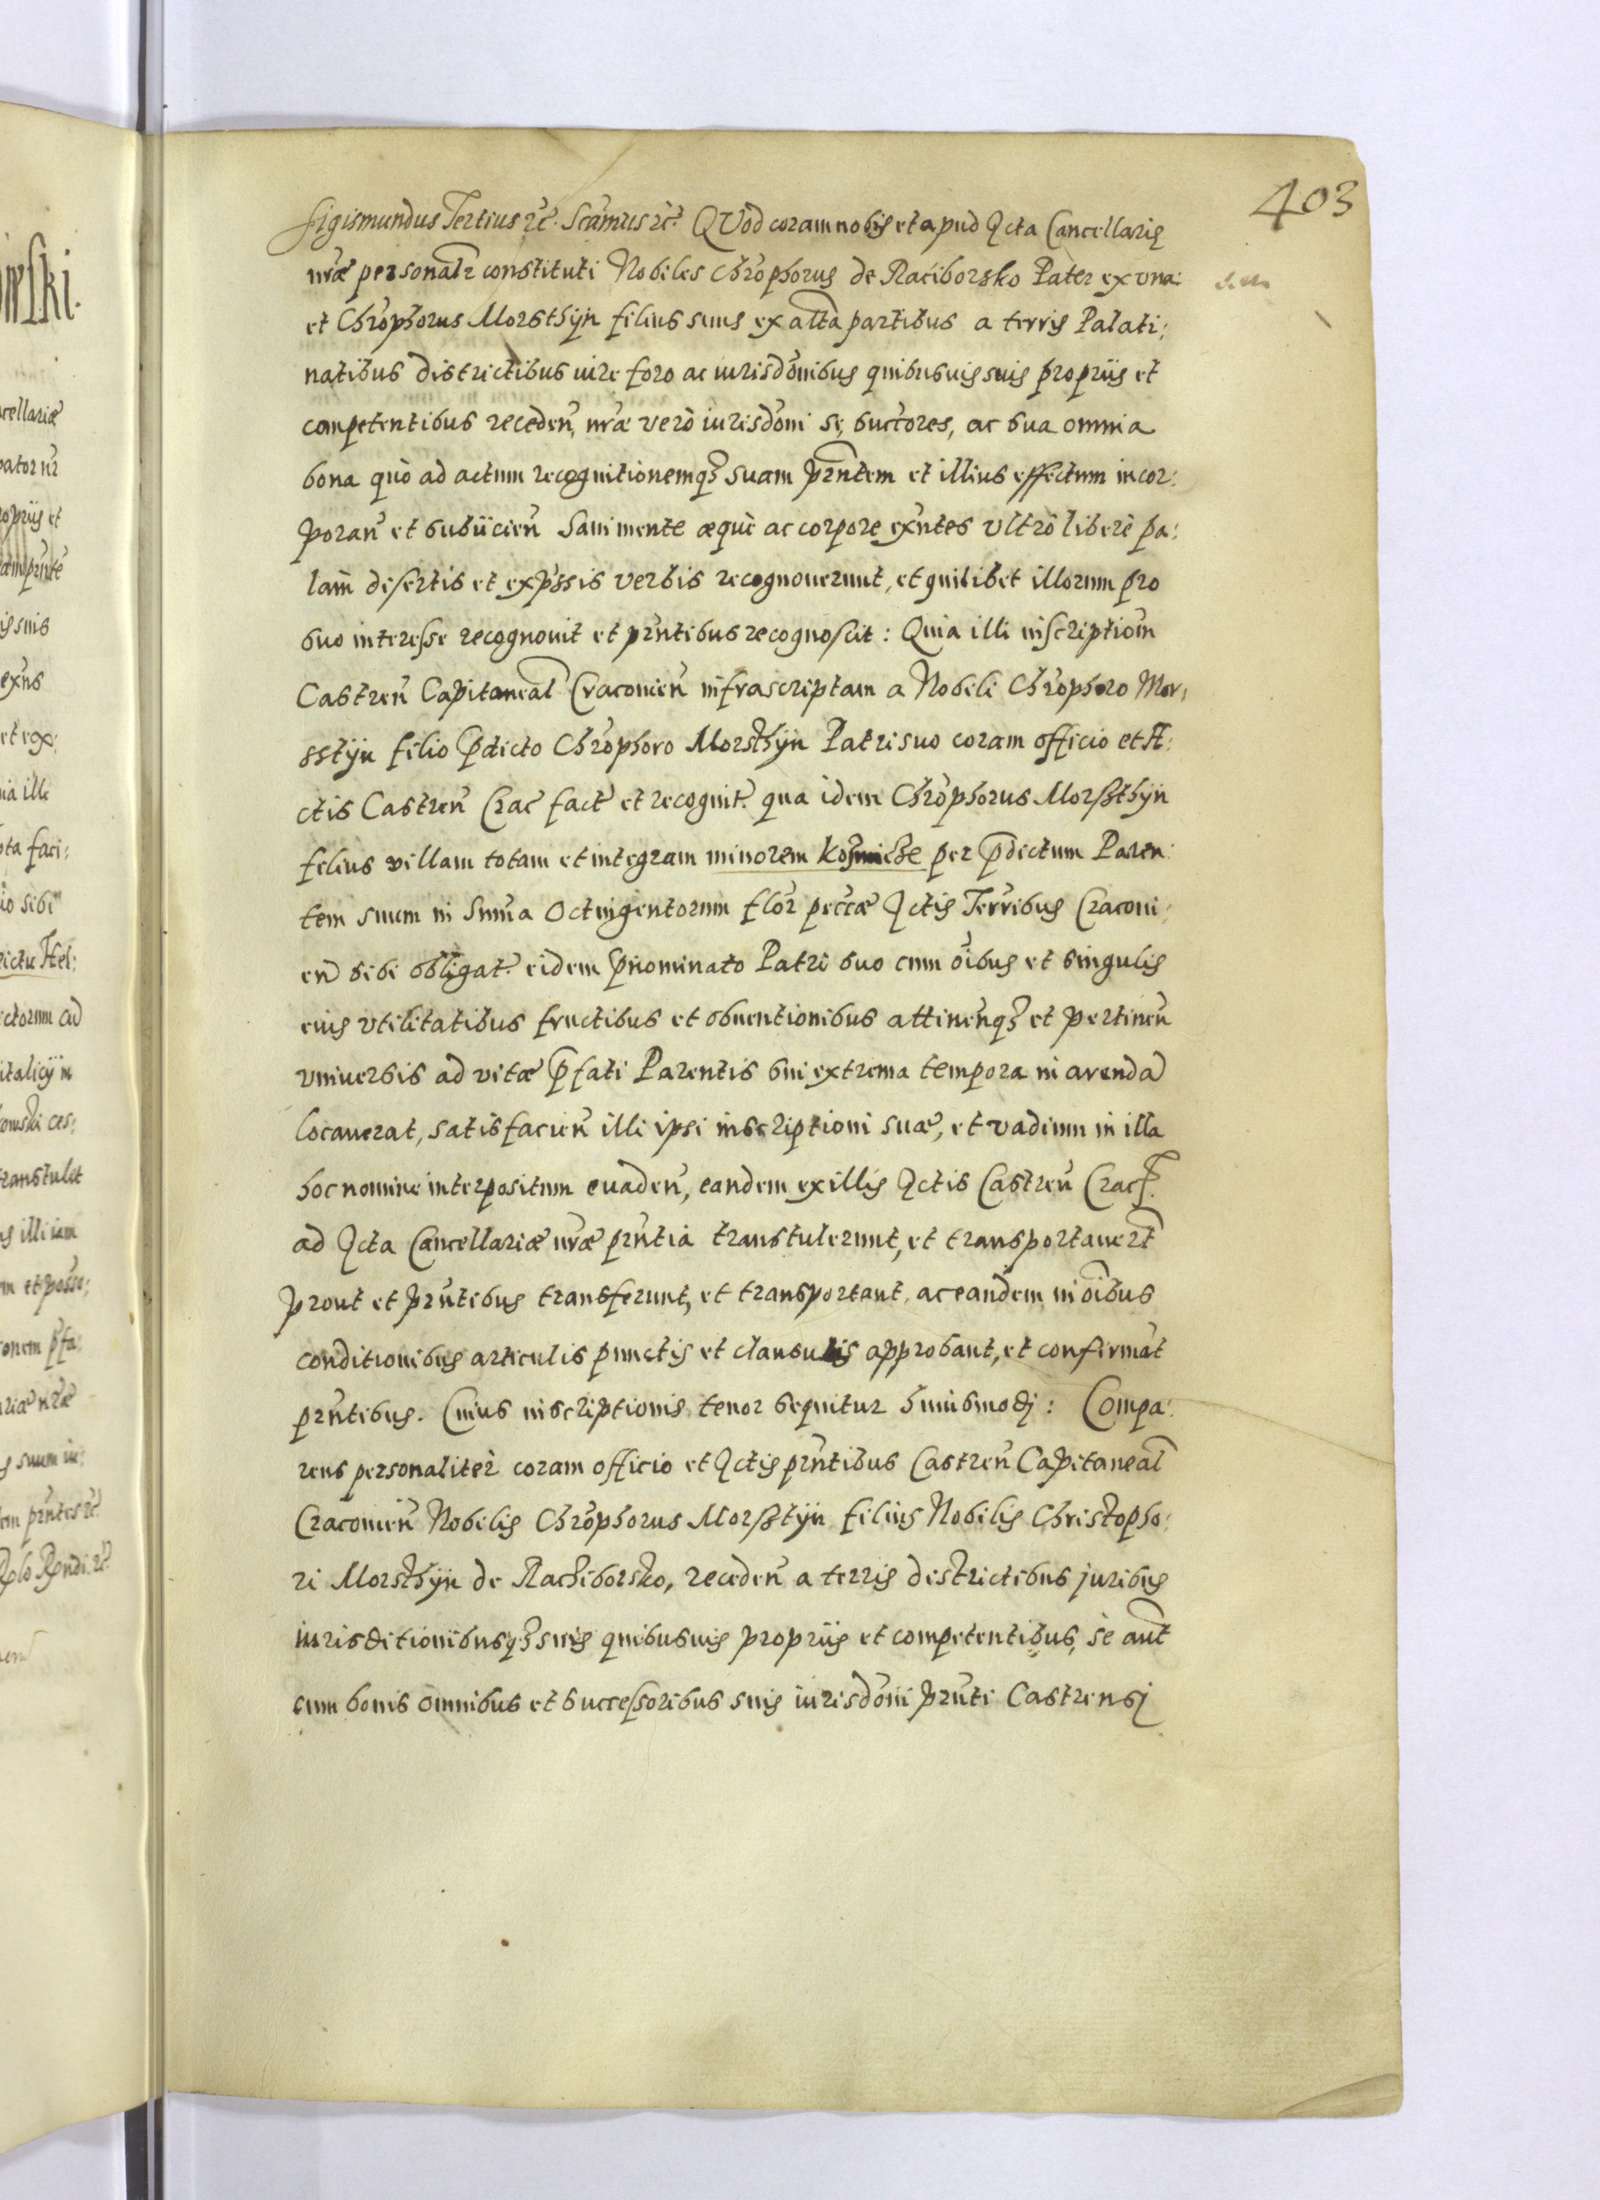 403
Sigismundus Tertius etc. Scamus etc. QVod coram nobis et apud Acta Cancellarię
nrae personalr constituti Nobiles Chrophorus de Raciborsko Pater ex vna
et Chrophorus Morsthÿn filius suus ex alta partibus a terris Palati:
natibus districtibus iure foro ac iurisdonibus quibusuis suis proprijs et
competentibus receden, nrae verò iurisdoni se, succores, ac sua omnia
bona quò ad actum recognitionemq3 suam prntem et illius effectum incor:
poran et subijcien Sani mente aequè ac corpore exntes vltrò liberè pa:
làm desertis et expssis verbis recognouerunt, et quilibet illorum pro
suo interesse recognouit et prntibus recognoscit: Quia illi inscriptiom
Castren Capitaneal Cracouien infrascriptam a Nobili Chrophoro Mor,
sstÿn filio pdicto Chrophoro Morsthÿn Patri suo coram officio et A:
ctis Castren Crac fact et recognit. qua idem Chrophorus Morssthÿn
filius villam totam et integram minorem per pdictum Paren:
tem suum in Suma Octingentorum flor peccae Actis Terribus Cracoui:
en sibi obligat. eidem pnominato Patri suo cum oibus et singulis
eius vtilitatibus fructibus et obuentionibus attinenq3 et pertinen
vniuersis ad vitae pfati Parentis sui extrema tempora in arenda
locauerat, satisfacien illi ipsi inscriptioni suae, et vadium in illa
hoc nomine interpositum euaden, eandem ex illis Actis Castren Crac.
ad Acta Cancellariae nrae prntia transtulerunt, et transportauert
prout et prntibus transferunt, et transportant, ac eandem in oibus
conditionibus articulis punctis et clausulis approbant, et confirmat
prntibus. Cuius inscriptionis tenor sequitur huiusmodj: Compa:
rens personalitèr coram officio et Actis prntibus Castren Capitaneal
Cracouien Nobilis Chrophorus Morsstÿn filius Nobilis Christopho:
ri Morsthÿn de Rachiborsko, receden a terris districtibus juribus
iurisditionibusq3 suis quibusuis proprijs et competentibus, sè aut
cum bonis omnibus et successoribus suis iurisdoni prnti Castrensj